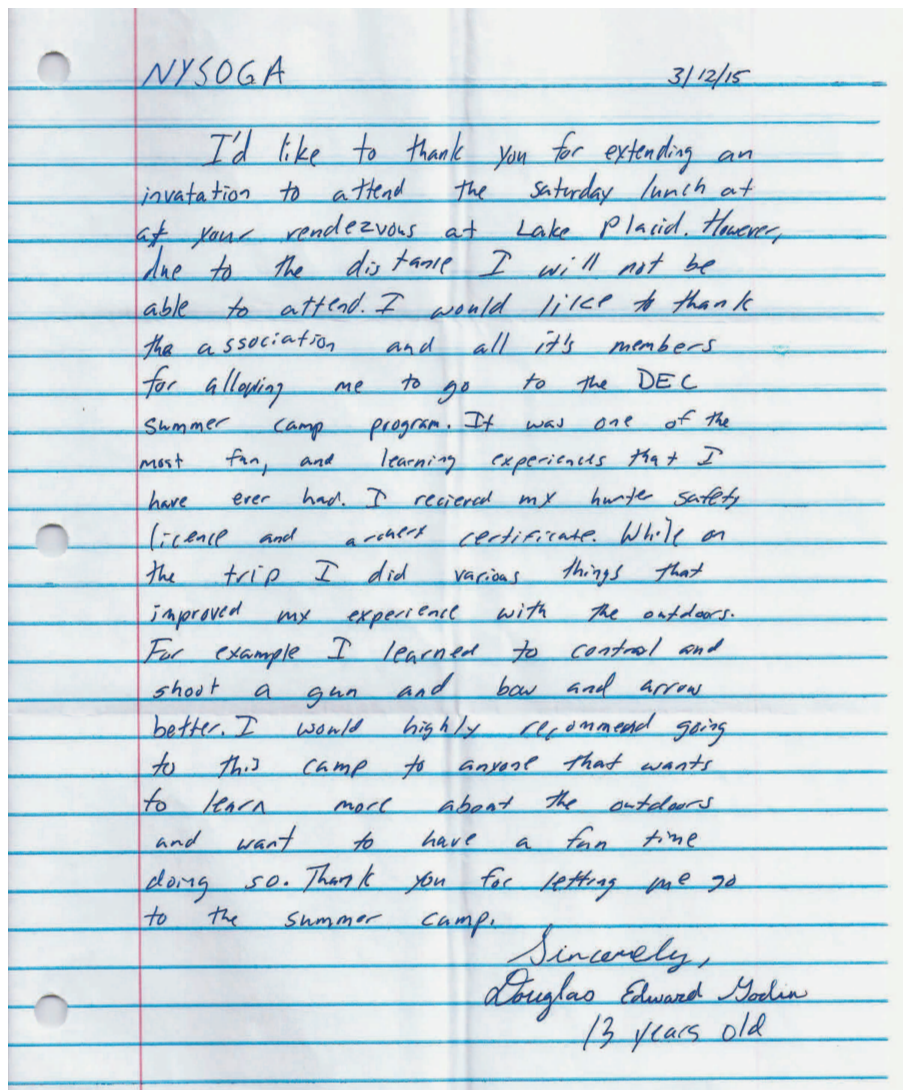 NYSOGA 3/12/15
I'd like to thank you for extending an
invatation to attend the saturday lunch at
at your rendezvous at Lake Placid. However,
due to the distance I will not be
able to attend. I would like to thank
the association and all it's members
for allowing me to go to the DEC
summer camp program. It was one of the
most fun, and learning experiences that I
have ever had. I recieved my hunter safety
licence and archery certificate. While on
the trip I did various things that
improved my experience with the outdoors.
For example I learned to control and
shoot a gun and bow and arrow
better. I would highly recommend going
to this camp to anyone that wants
to learn more about the outdoors
and want to have a fun time
doing so. Thank you for letting me go
to the summer camp.
Sincerely,
Douglas Edward Godin
13 years old